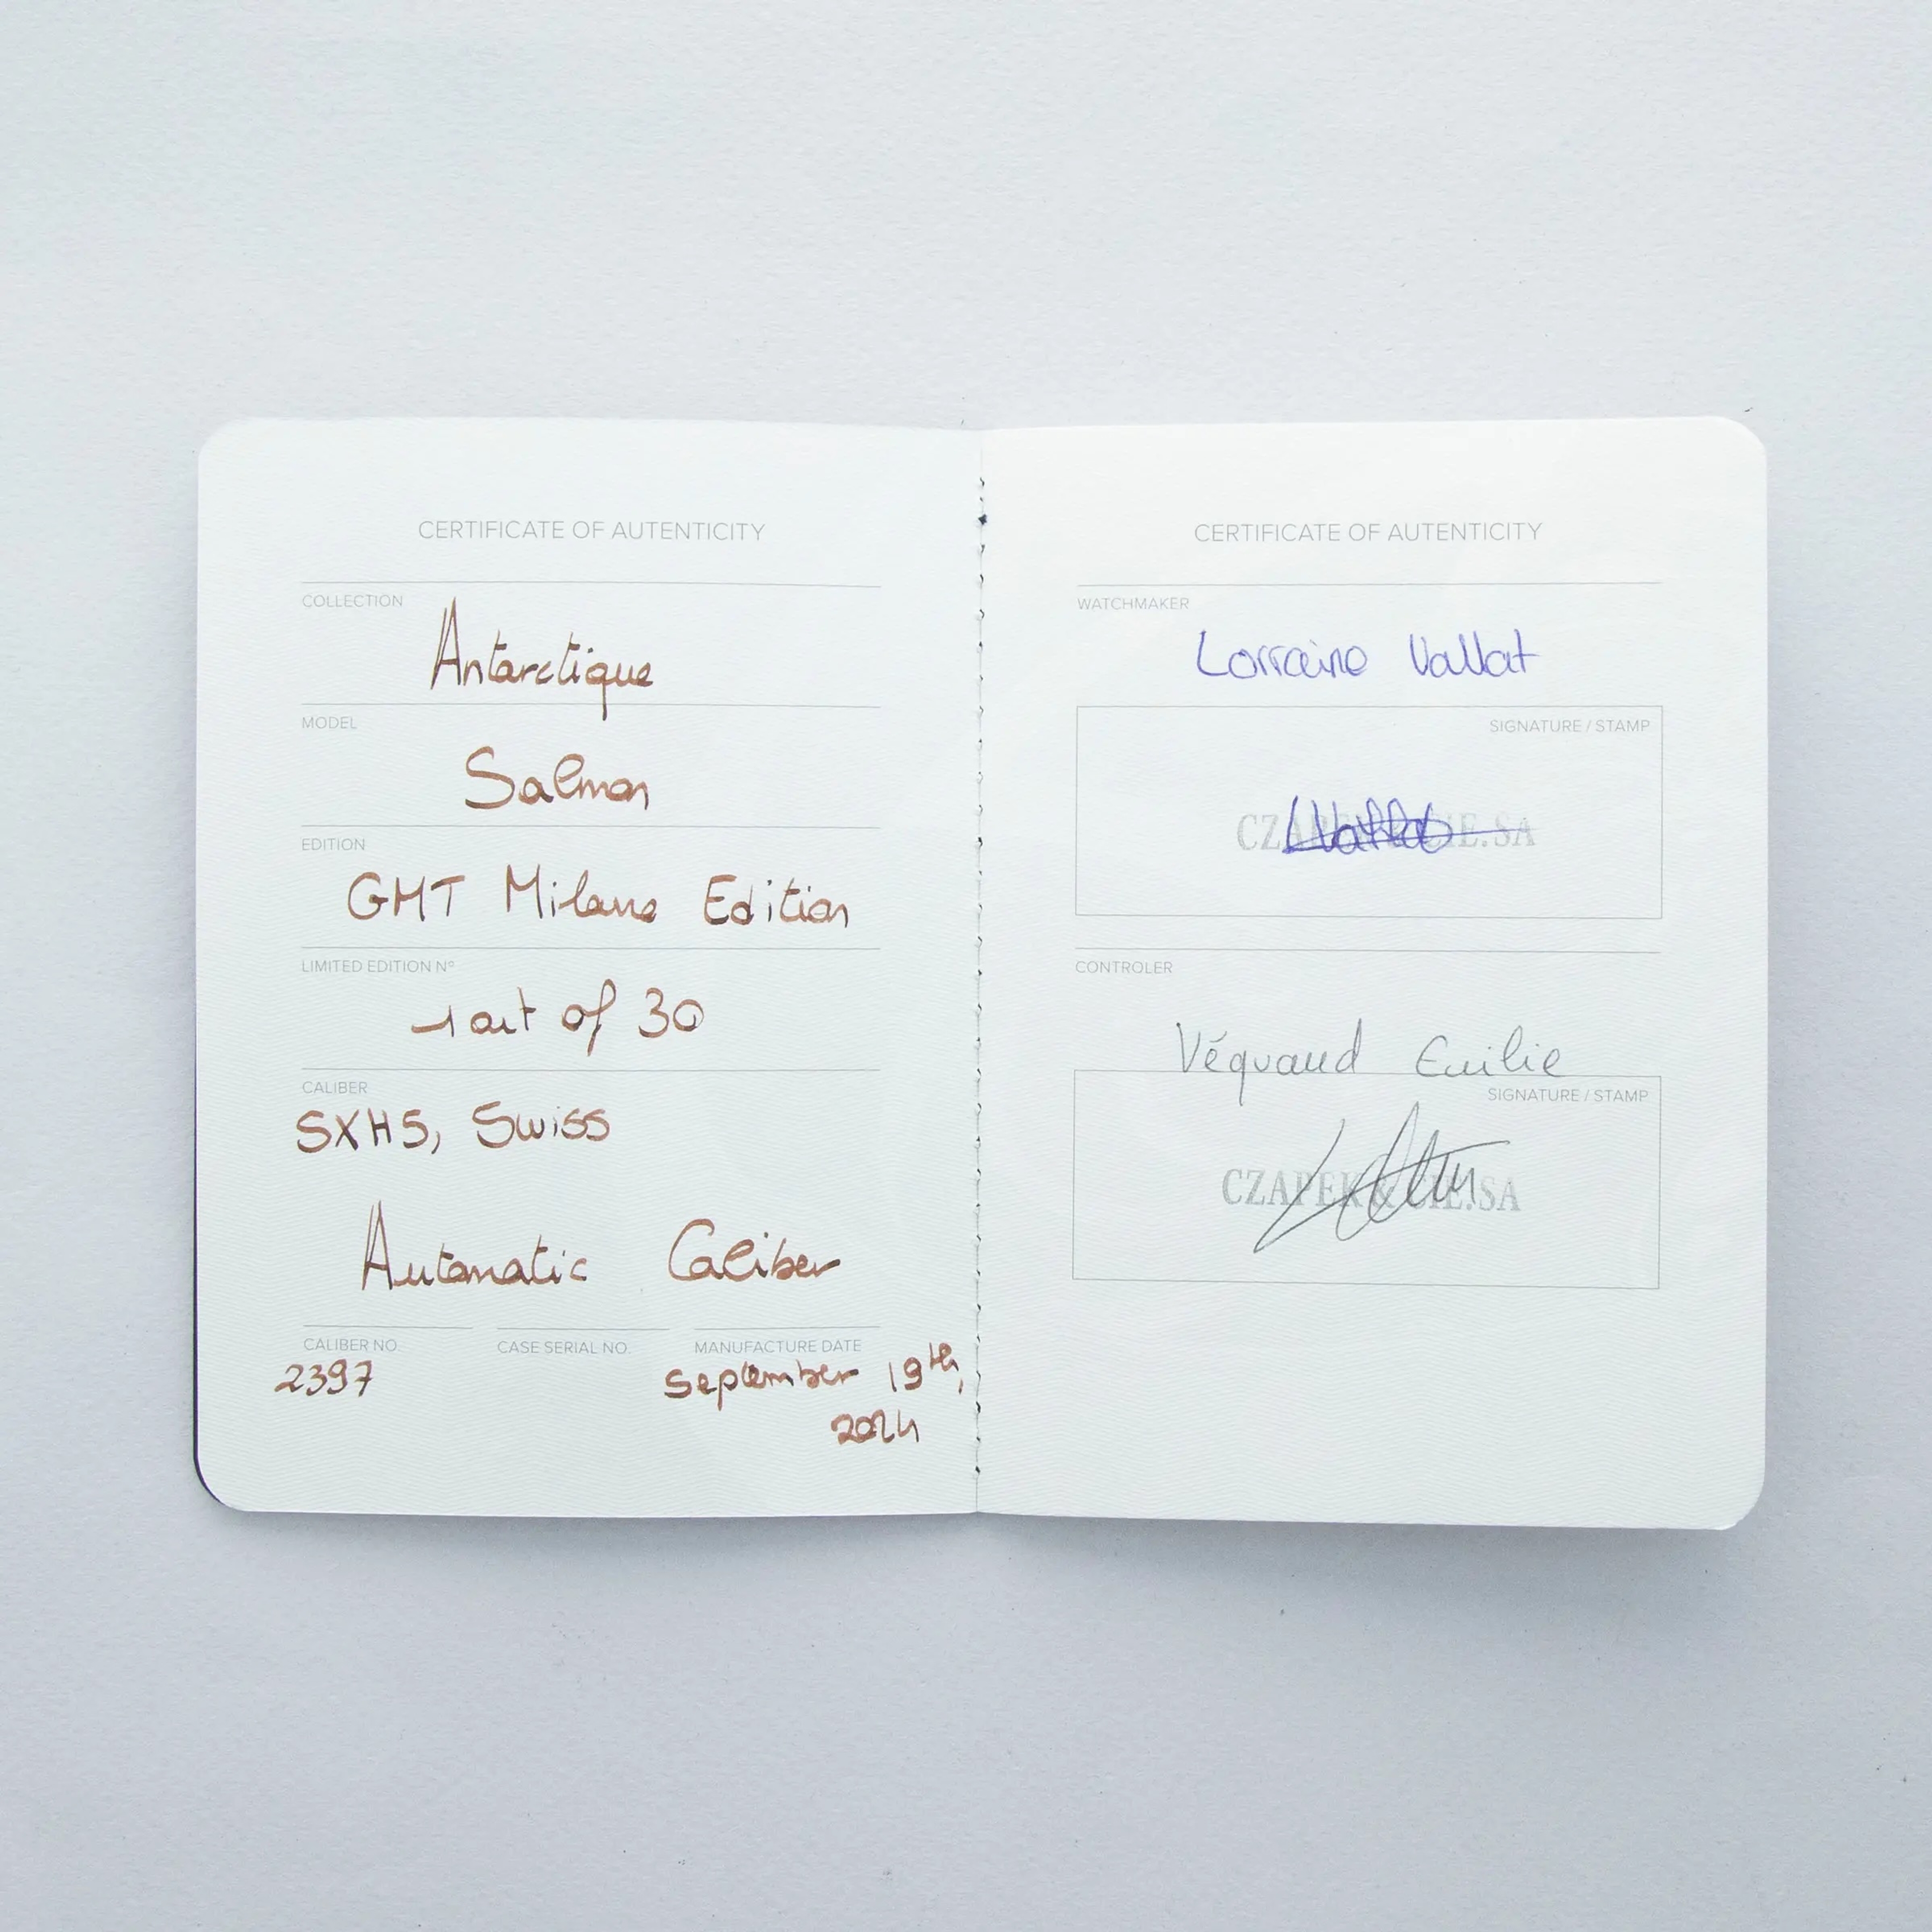 CERTIFICATE OF AUTENTICITY
COLLECTION
Antarctique
MODEL
Salmon
EDITION
GMT Milano Edition
LIMITED EDITION Nº
1 out of 30
CALIBER
SXH5, Swiss
Automatic Caliber
CALIBER NO.
2397
CASE SERIAL NO.
MANUFACTURE DATE
September 19th,
2024
CERTIFICATE OF AUTENTICITY
WATCHMAKER
Lorraine Vallat
SIGNATURE / STAMP
CZAPEK & CIE.SA
CONTROLER
Véquaud Emilie
SIGNATURE / STAMP
CZAPEK & CIE.SA